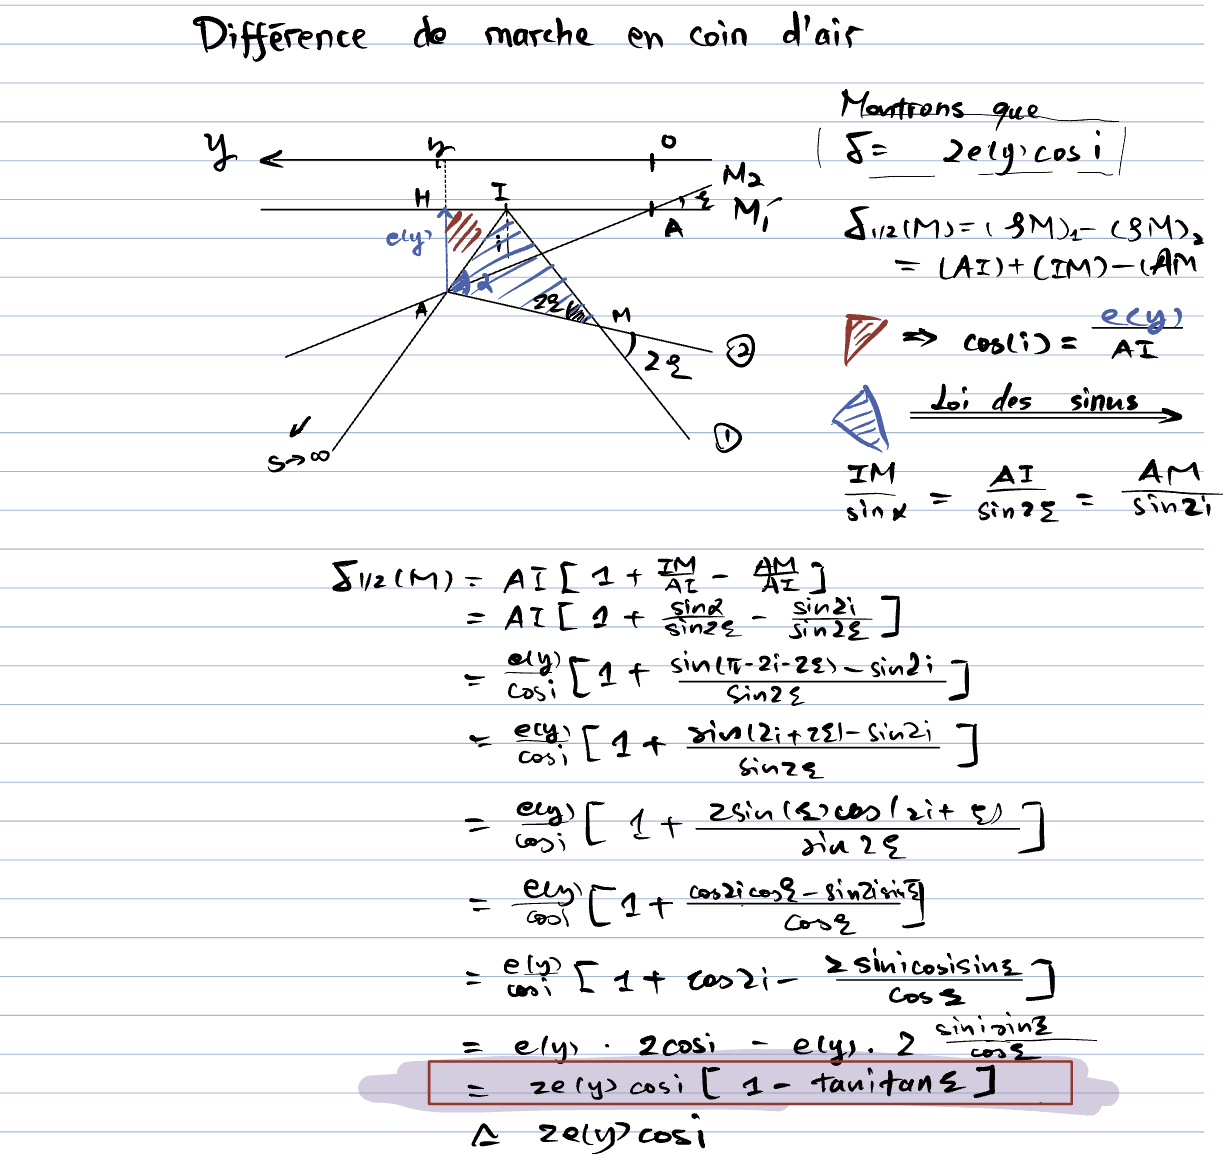 Différence de marche en coin d'air
Montrons que
δ = 2e(y) cos i
y
y
O
H
I
M2
ξ
A
M1'
e(y)
i
α
A
2ξ
M
2ξ
②
①
S→∞
δ1/2(M) = (SM)1 - (SM)2
= (AI) + (IM) - (AM
⇒ cos(i) = e(y)/AI
Loi des sinus
IM/sin α = AI/sin 2ξ = AM/sin 2i
δ1/2(M) = AI [ 1 + IM/AI - AM/AI ]
= AI [ 1 + sin α/sin 2ξ - sin 2i/sin 2ξ ]
= e(y)/cos i [ 1 + (sin(π-2i-2ξ) - sin 2i)/sin 2ξ ]
= e(y)/cos i [ 1 + (sin(2i+2ξ) - sin 2i)/sin 2ξ ]
= e(y)/cos i [ 1 + 2 sin(ξ) cos(2i+ξ)/sin 2ξ ]
= e(y)/cos i [ 1 + (cos 2i cos ξ - sin 2i sin ξ)/cos ξ ]
= e(y)/cos i [ 1 + cos 2i - 2 sin i cos i sin ξ/cos ξ ]
= e(y) · 2 cos i - e(y) · 2 sin i sin ξ/cos ξ
= 2e(y) cos i [ 1 - tan i tan ξ ]
≃ 2e(y) cos i